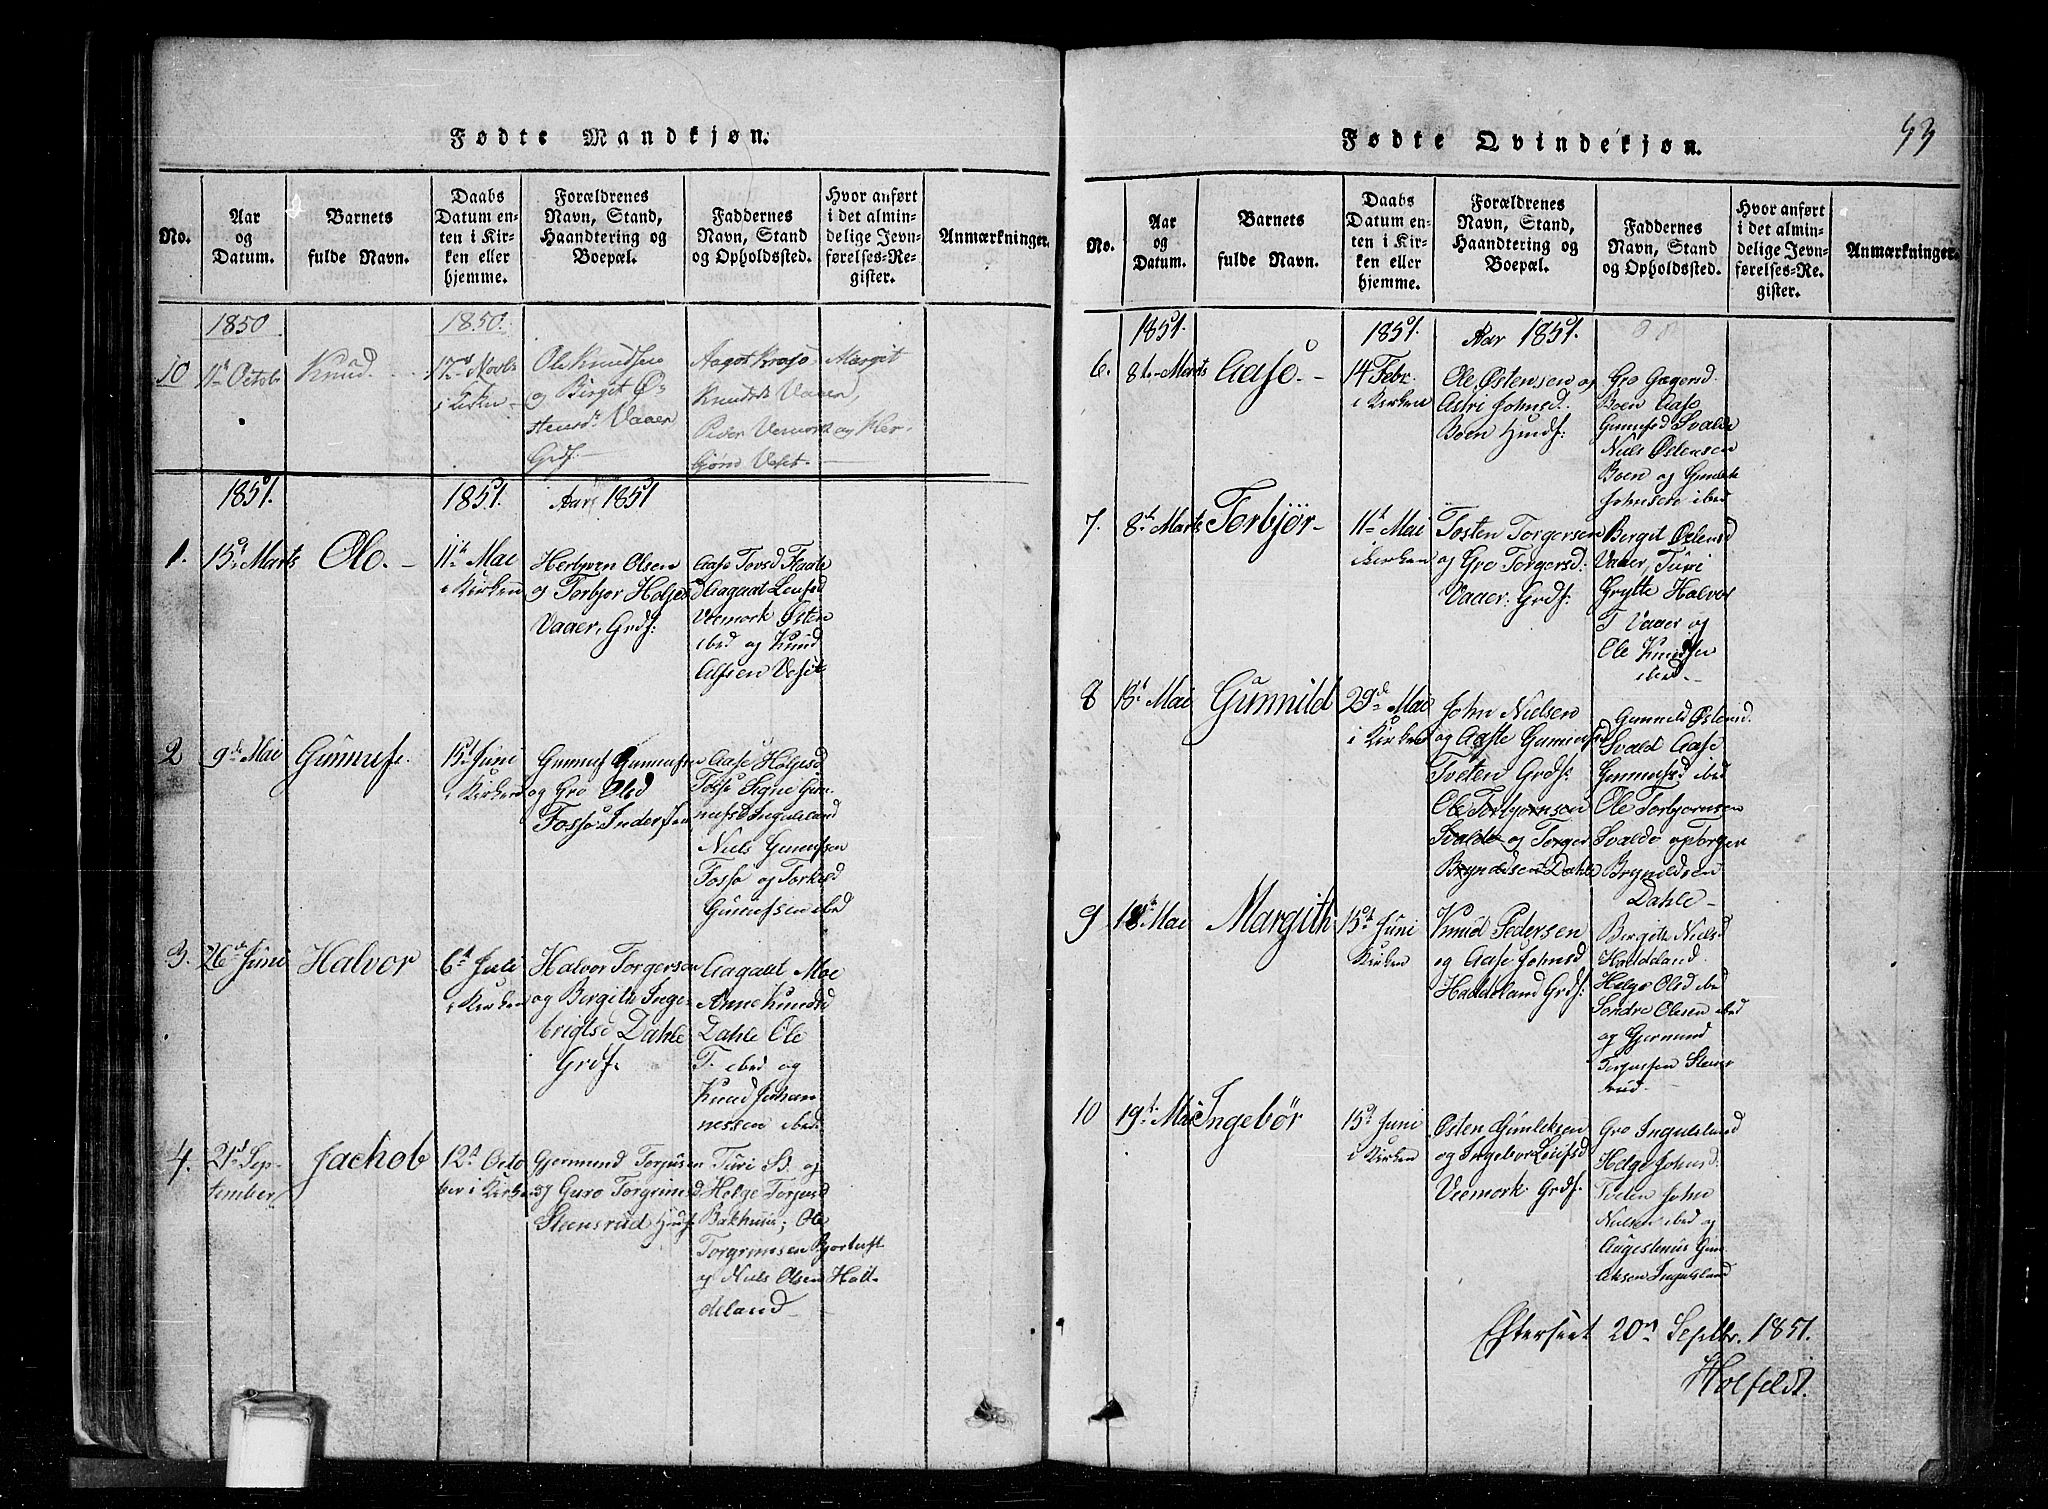 Fødte Mandkjøn.
No.
Aar
og
Datum.
Barnets
fulde Navn.
Daabs
Datum en-
ten i Kir-
ken eller
hjemme.
Forældrenes
Navn, Stand,
Haandtering og
Boepæl.
Faddernes
Navn, Stand
og Opholdssted.
Hvor anført
i det almin-
delige Jevn-
førelses-Re-
gister.
Anmærkninger.
1850
1850.
10
11te Octob
Knud.
12te Novbr
i Kirken
Ole Knudsen
og Birget Ø-
stensd. Vaaer
Grdf.
Aagot Kraso Margit
Knudsd. Vaaer,
Peder Vemork og Her-
bjørn Veset.
1851.
1851.
Aar 1851
1.
15de Marts
Ole.
11te Mai
i Kirken
Herbjørn Olsen
og Torbjor Holjes
Vaaer, Grdf:
Aase Torsd
Aagaat Leufsd
Vemork Østen
ibed og Knud
Alfsen Veset
2
9de Mai
Gunnuf.
15de Juni
i Kirken
Gunnuf Gunnufsen
og Gro Olsd
Fosso Inderst
Aase Holjesd
Fosso Signe Gun-
nufsd Ingulsland
Niels Gunufsen
Fosso og Torkild
Gunufsen ibed
3.
26de Juni
Halvor
6te Juli
i Kirken
Halvor Torgersen
og Bergith Inge-
brigtsd Dahle
Grdf.
Aagaat Moe
Anne Knudsd
Dahle Ole
T. ibed og
Knud Johan
nessen ibed.
4.
21de Sep-
tember
Jachob
12te Octo
ber i Kirken
Gjermund Torjusen
og Guro Torgrimsd
Stensrud Husf
Turi S. og
Helge Torjusd
Bakhuus; Ole
Torgrimsen Bjortuft
og Niels Olsen Had-
deland
Fødte Qvindekjøn.
53
No.
Aar
og
Datum.
Barnets
fulde Navn.
Daabs
Datum en-
ten i Kir-
ken eller
hjemme.
Forældrenes
Navn, Stand,
Haandtering og
Boepæl.
Faddernes
Navn, Stand
og Opholdssted.
Hvor anført
i det almin-
delige Jevn-
førelses-Re-
gister.
Anmærkninger.
1851.
1851.
Aar 1851.
6.
8de Marts
Aase.
14 Febr.
i Kirken
Ole Østensen og
Astri Johnsd.
Boen Husf:
Gro Gregersd.
Boen Aase
Gunnufsd Svalde
Niels Østensen
Boen og Gunlek
Johnsen ibed
7.
8de Marts
Torbjør
11te Mai
i Kirken
Tosten Torgersen
og Gro Torgersd:
Vaaer: Grdf:
Bergit Østensd
Vaaer, Turi
Grytte Halvor
T Vaaer og
Ole Knudsen
ibed.
8
15de Mai
Gunnild
29de Mai
i Kirken
John Nielsen
og Aaste Gunnufsd
Tveten Grdf:
Ole Torbjornsen
Svalde og Torger
Bryndilsen Dahle
Gunnild Østensd.
Svald Aase
Gunnufsd ibed
Ole Torbjornsen
Svalde og Torger
Brynildsen
Dahle
9
18de Mai
Margith
15de Juni
i Kirken
Knud Pedersen
og Aase Johnsd
Haddeland Grdf:
Bergitte Nielsd
Haddeland
Helge Olsd ibed
Sondre Olesen ibed
og Gjermund
Torjussen Stens
rud
10
19de Mai
Ingebør
15de Juni
i Kirken
Østen Gunleksen
og Ingebor Leifsd
Veemork Grdf.
Gro Ingulsland
Helge Johnsd
Tveten John
Nielsen ibed og
Augestinus Gun
leksen Ingulsland
Efterseet 20de Septbr. 1851.
Holfeldt.